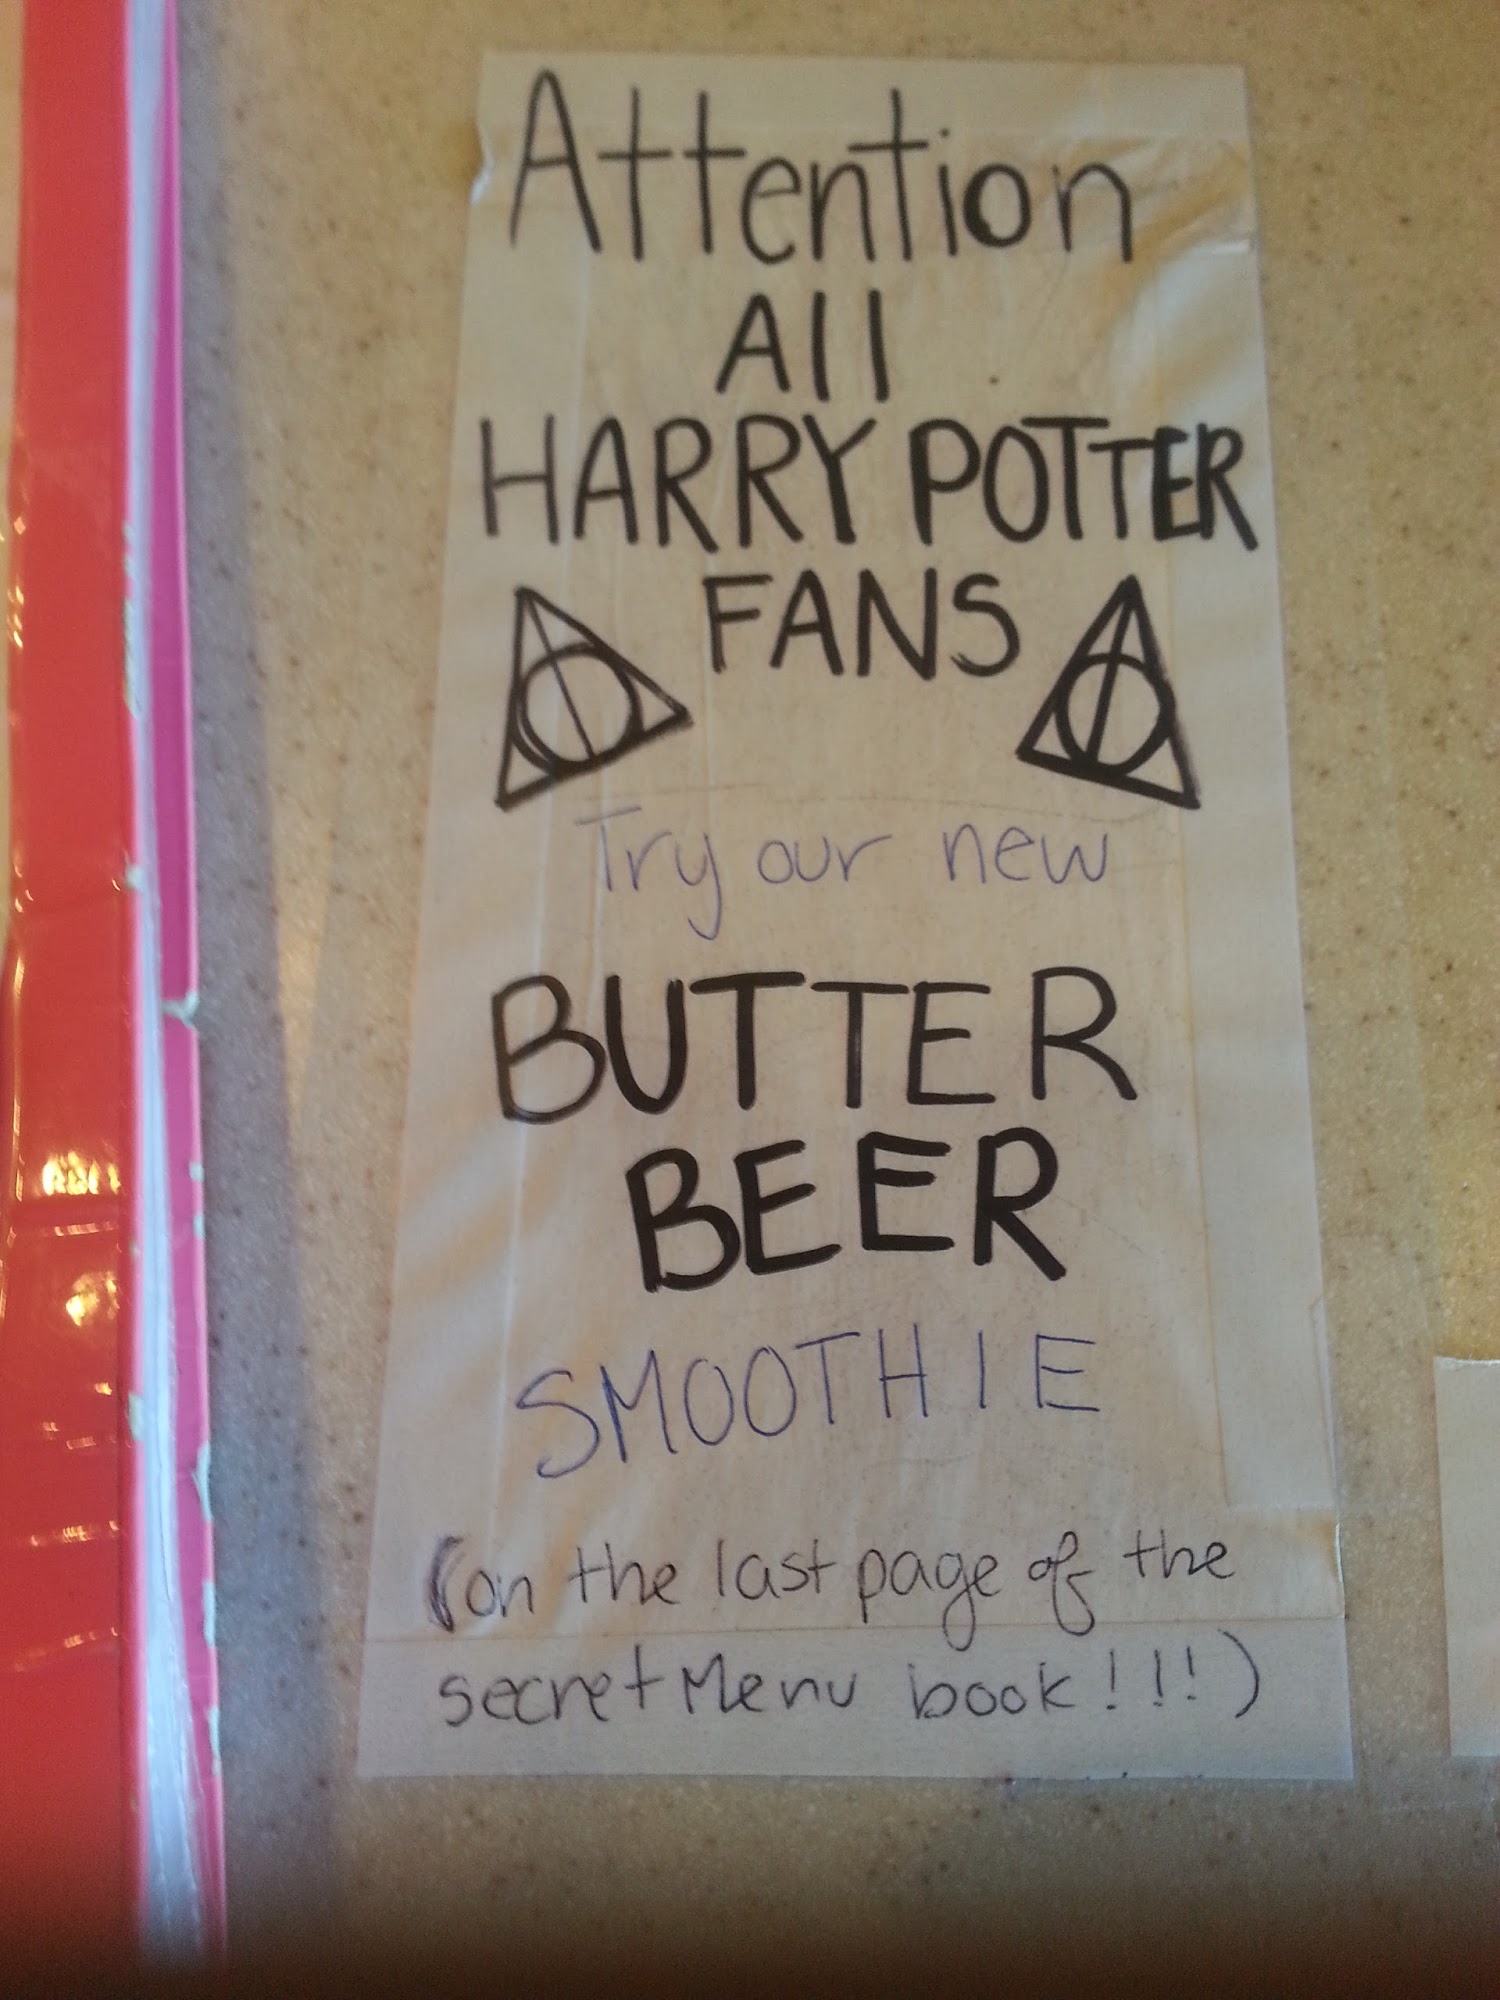 Attention
All
HARRY POTTER
FANS
Try our new
BUTTER
BEER
SMOOTHIE
(on the last page of the
secret Menu book!!!)